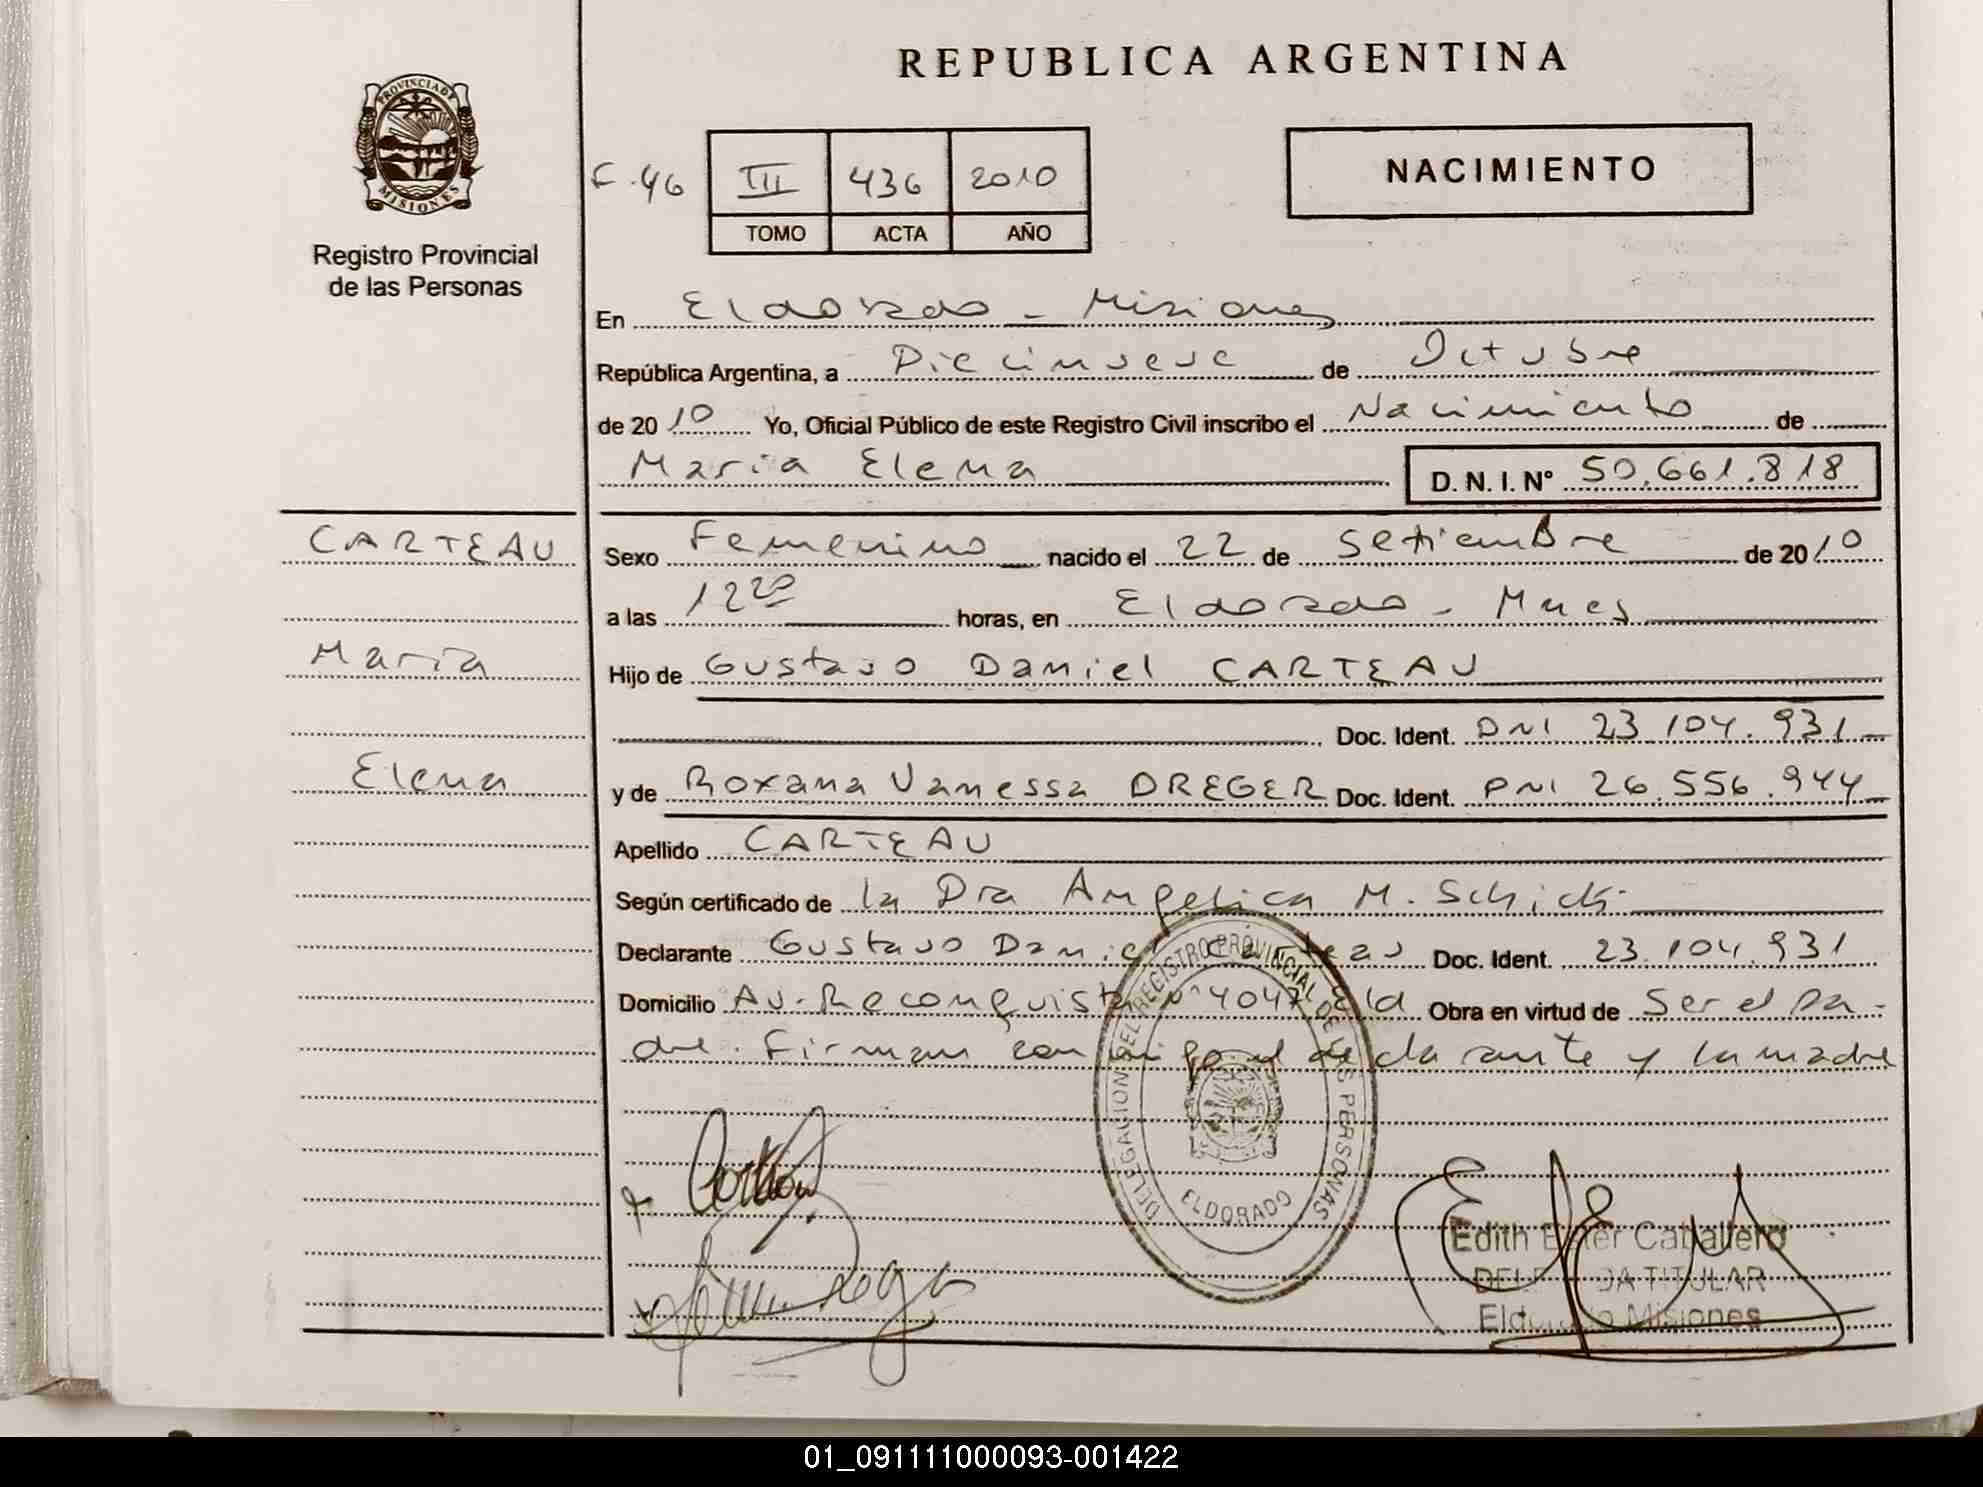 REPUBLICA ARGENTINA
PROVINCIA DE
MISIONES
Registro Provincial
de las Personas
F.46
III 436 2010
TOMO ACTA AÑO
NACIMIENTO
En Eldorado - Misiones
República Argentina, a Diecinueve de Octubre
de 2010 Yo, Oficial Público de este Registro Civil inscribo el Nacimiento de
Maria Elena D. N. I. Nº 50.661.818
CARTEAU
Maria
Elena
Sexo Femenino nacido el 22 de Setiembre de 2010
a las 12 20 horas, en Eldorado - Mnes
Hijo de Gustavo Daniel CARTEAU
Doc. Ident. DNI 23.104.931
y de Roxana Vanessa DREGER Doc. Ident. DNI 26.556.944
Apellido CARTEAU
Según certificado de la Dra Angelica M. Schick
Declarante Gustavo Daniel Carteau Doc. Ident. 23.104.931
Domicilio Av. Reconquista Nº 4047 Eld Obra en virtud de Ser el pa-
dre. Firman conmigo el declarante y la madre
DELEGACION DEL REGISTRO PROVINCIAL DE LAS PERSONAS
ELDORADO
Edith Ester Caballero
DELEGADA TITULAR
Eldorado Misiones
01_091111000093-001422